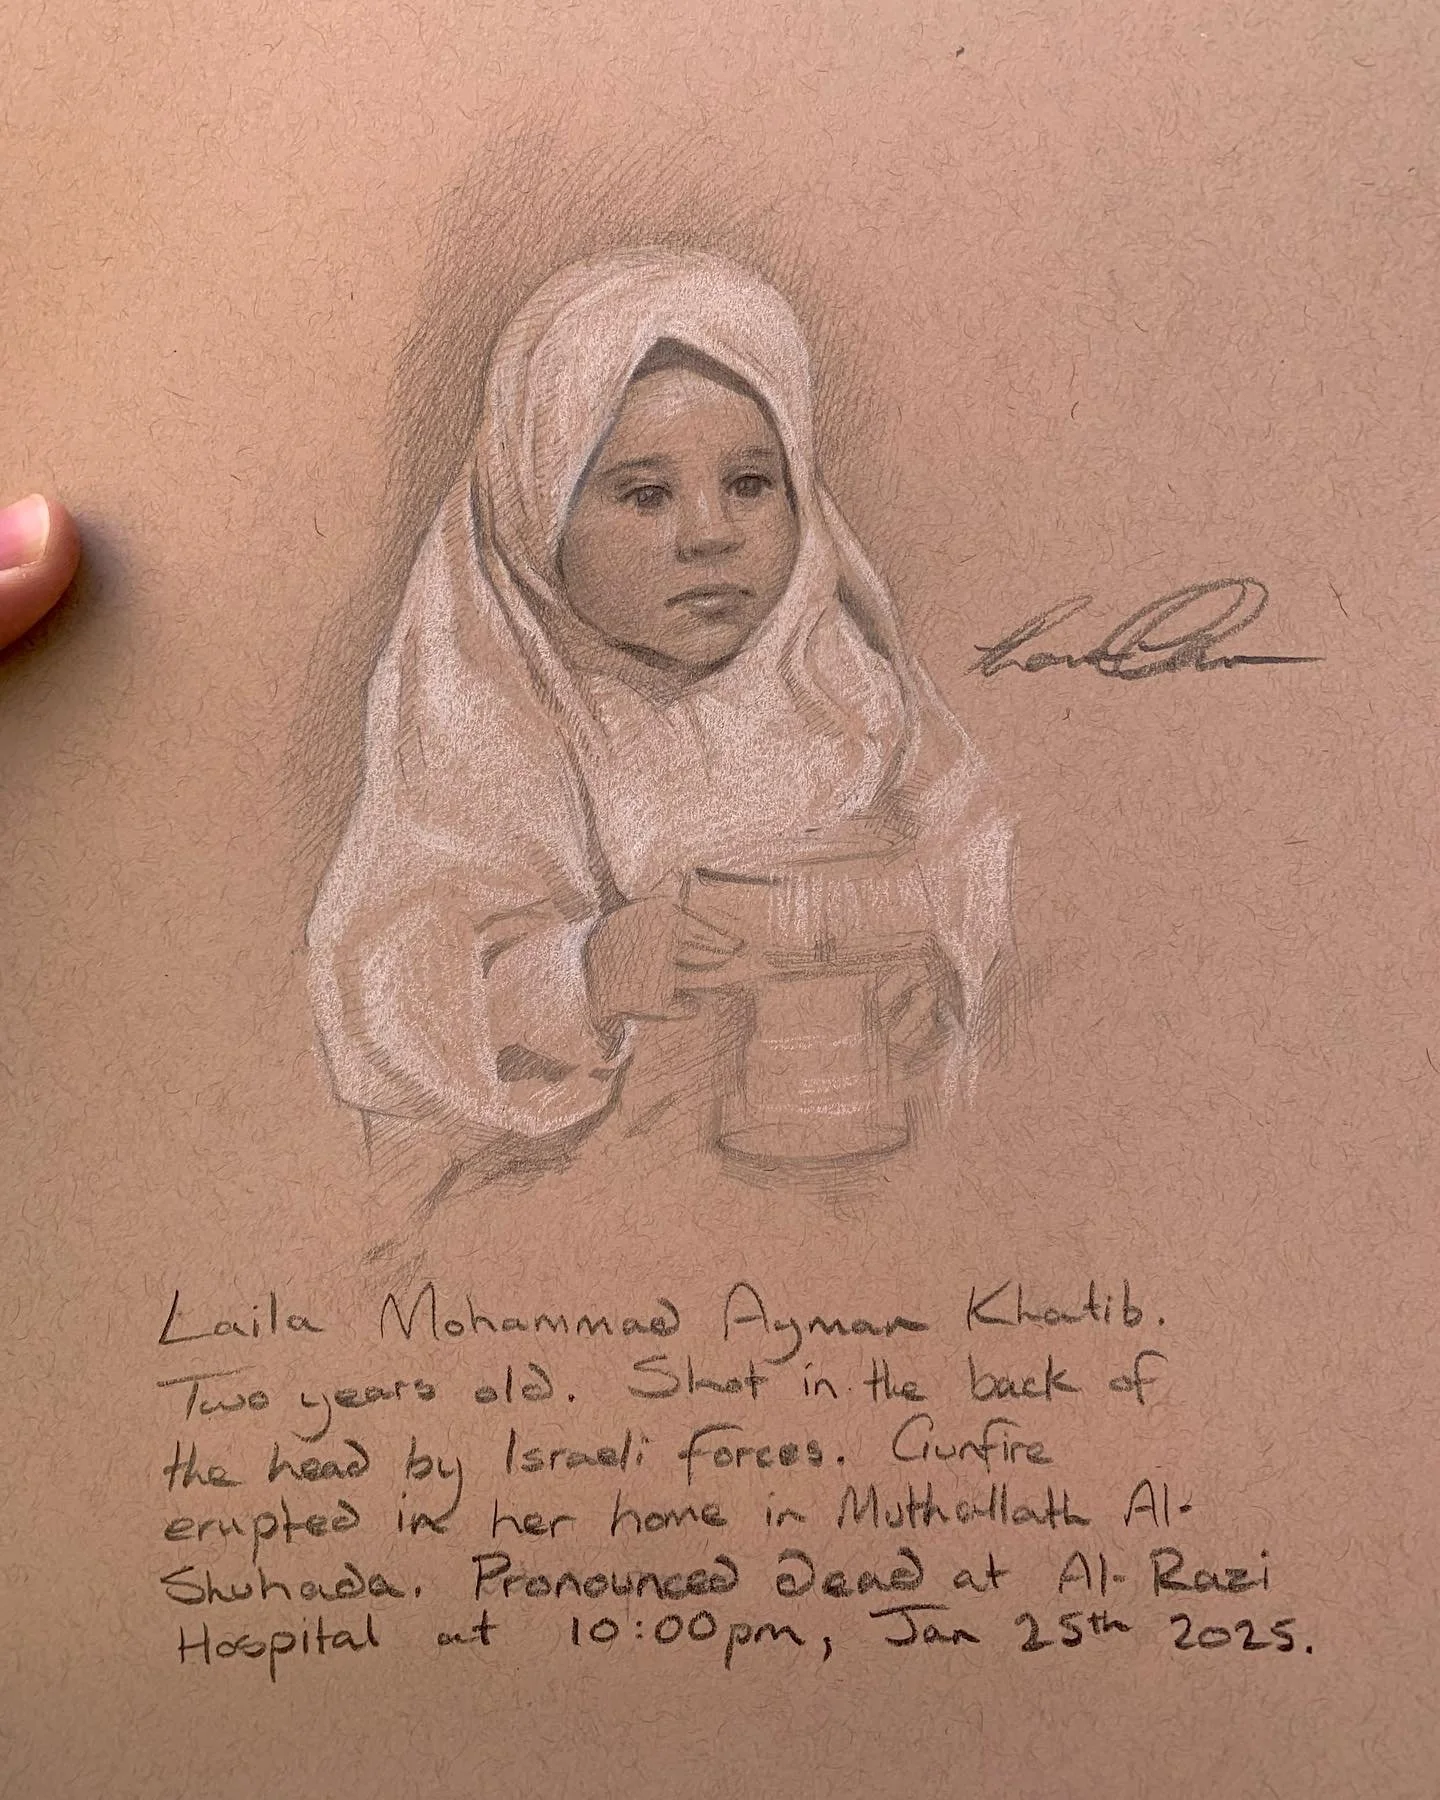 Laila Mohammad Ayman Khatib.
Two years old. Shot in the back of
the head by Israeli forces. Gunfire
erupted in her home in Muthallath Al-
Shuhada. Pronounced dead at Al-Razi
Hospital at 10:00pm, Jan 25th 2025.